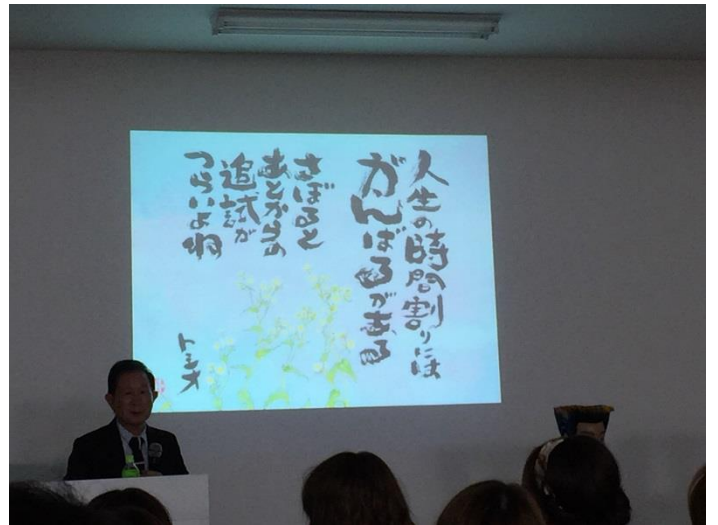 人生の時間割りには
がんばるがある
さぼると
あとからの
追試が
つらいよね
トモオ